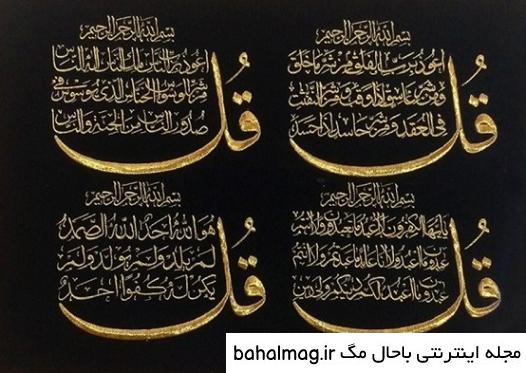 بسم الله الرحمن الرحيم
قل
اعوذ برب الفلق من شر ما خلق
ومن شر غاسق اذا وقب ومن شر النفثت
في العقد ومن شر حاسد اذا حسد
بسم الله الرحمن الرحيم
قل
اعوذ برب الناس ملك الناس اله الناس
من شر الوسواس الخناس الذي يوسوس في
صدور الناس من الجنة والناس
بسم الله الرحمن الرحيم
قل
يا ايها الكافرون لا اعبد ما تعبدون ولا انتم
عبدون ما اعبد ولا انا عابد ما عبدتم ولا انتم
عبدون ما اعبد لكم دينكم ولي دين
بسم الله الرحمن الرحيم
قل
هو الله احد الله الصمد
لم يلد ولم يولد ولم
يكن له كفوا احد
مجله اینترنتی باحال مگ bahalmag.ir